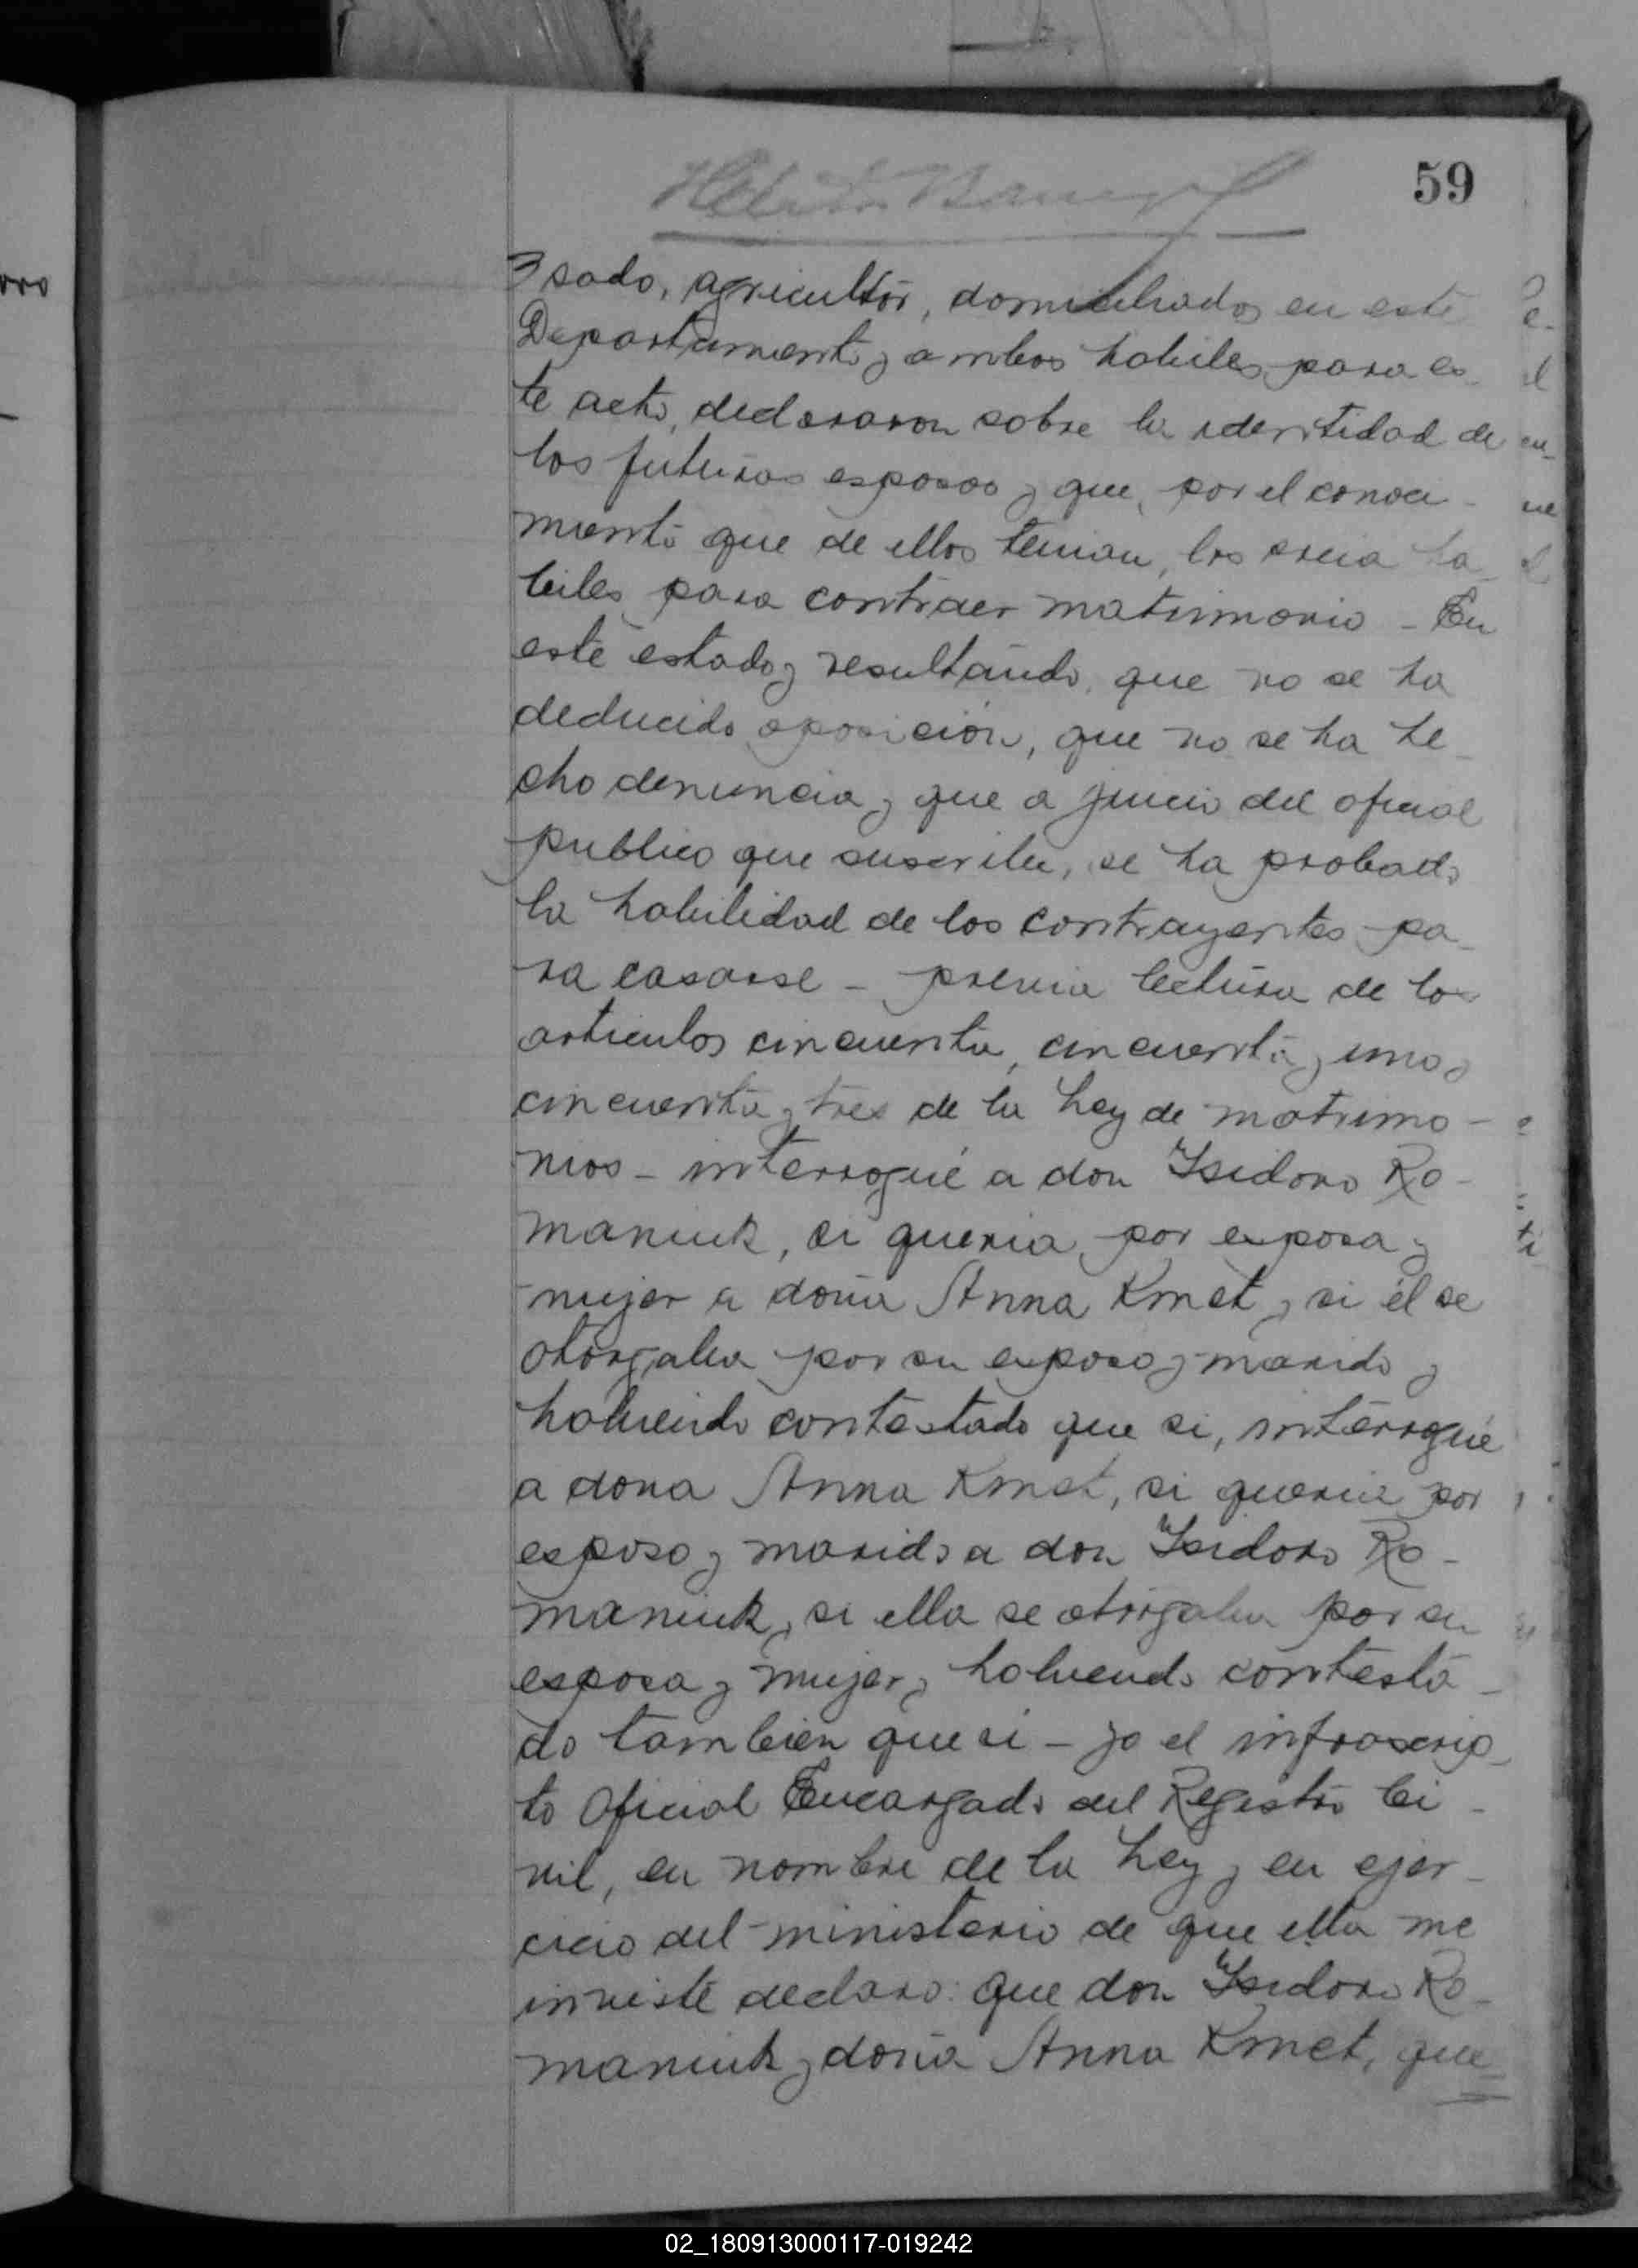 59
sado, agricultor, domiciliados en este
Departamento y ambos habiles para es-
te acto, declararon sobre la identidad de
los futuros esposos y que, por el conoci-
miento que de ellos tenian, los creia ha-
biles para contraer matrimonio - En
este estado y resultando, que no se ha
deducido oposición, que no se ha he-
cho denuncia y que a juicio del oficial
publico que suscribe, se ha probado
la habilidad de los contrayentes pa-
ra casarse - previa lectura de los
articulos cincuenta, cincuenta y uno y
cincuenta y tres de la Ley de matrimo-
nios - interrogué a don Isidoro Ro-
maniuk, si queria por esposa y
mujer a doña Anna Kmet y si él se
otorgaba por su esposo y marido y
habiendo contestado que si, interrogué
a dona Anna Kmet, si queria por
esposo y marido a don Isidoro Ro-
maniuk y si ella se otorgaba por su
esposa y mujer y habiendo contesta-
do tambien que si - yo el infrascrip-
to Oficial Encargado del Registro Ci-
vil, en nombre de la Ley y en ejer-
cicio del ministerio de que ella me
inviste declaro: que don Isidoro Ro-
maniuk y doña Anna Kmet, que
02_180913000117-019242